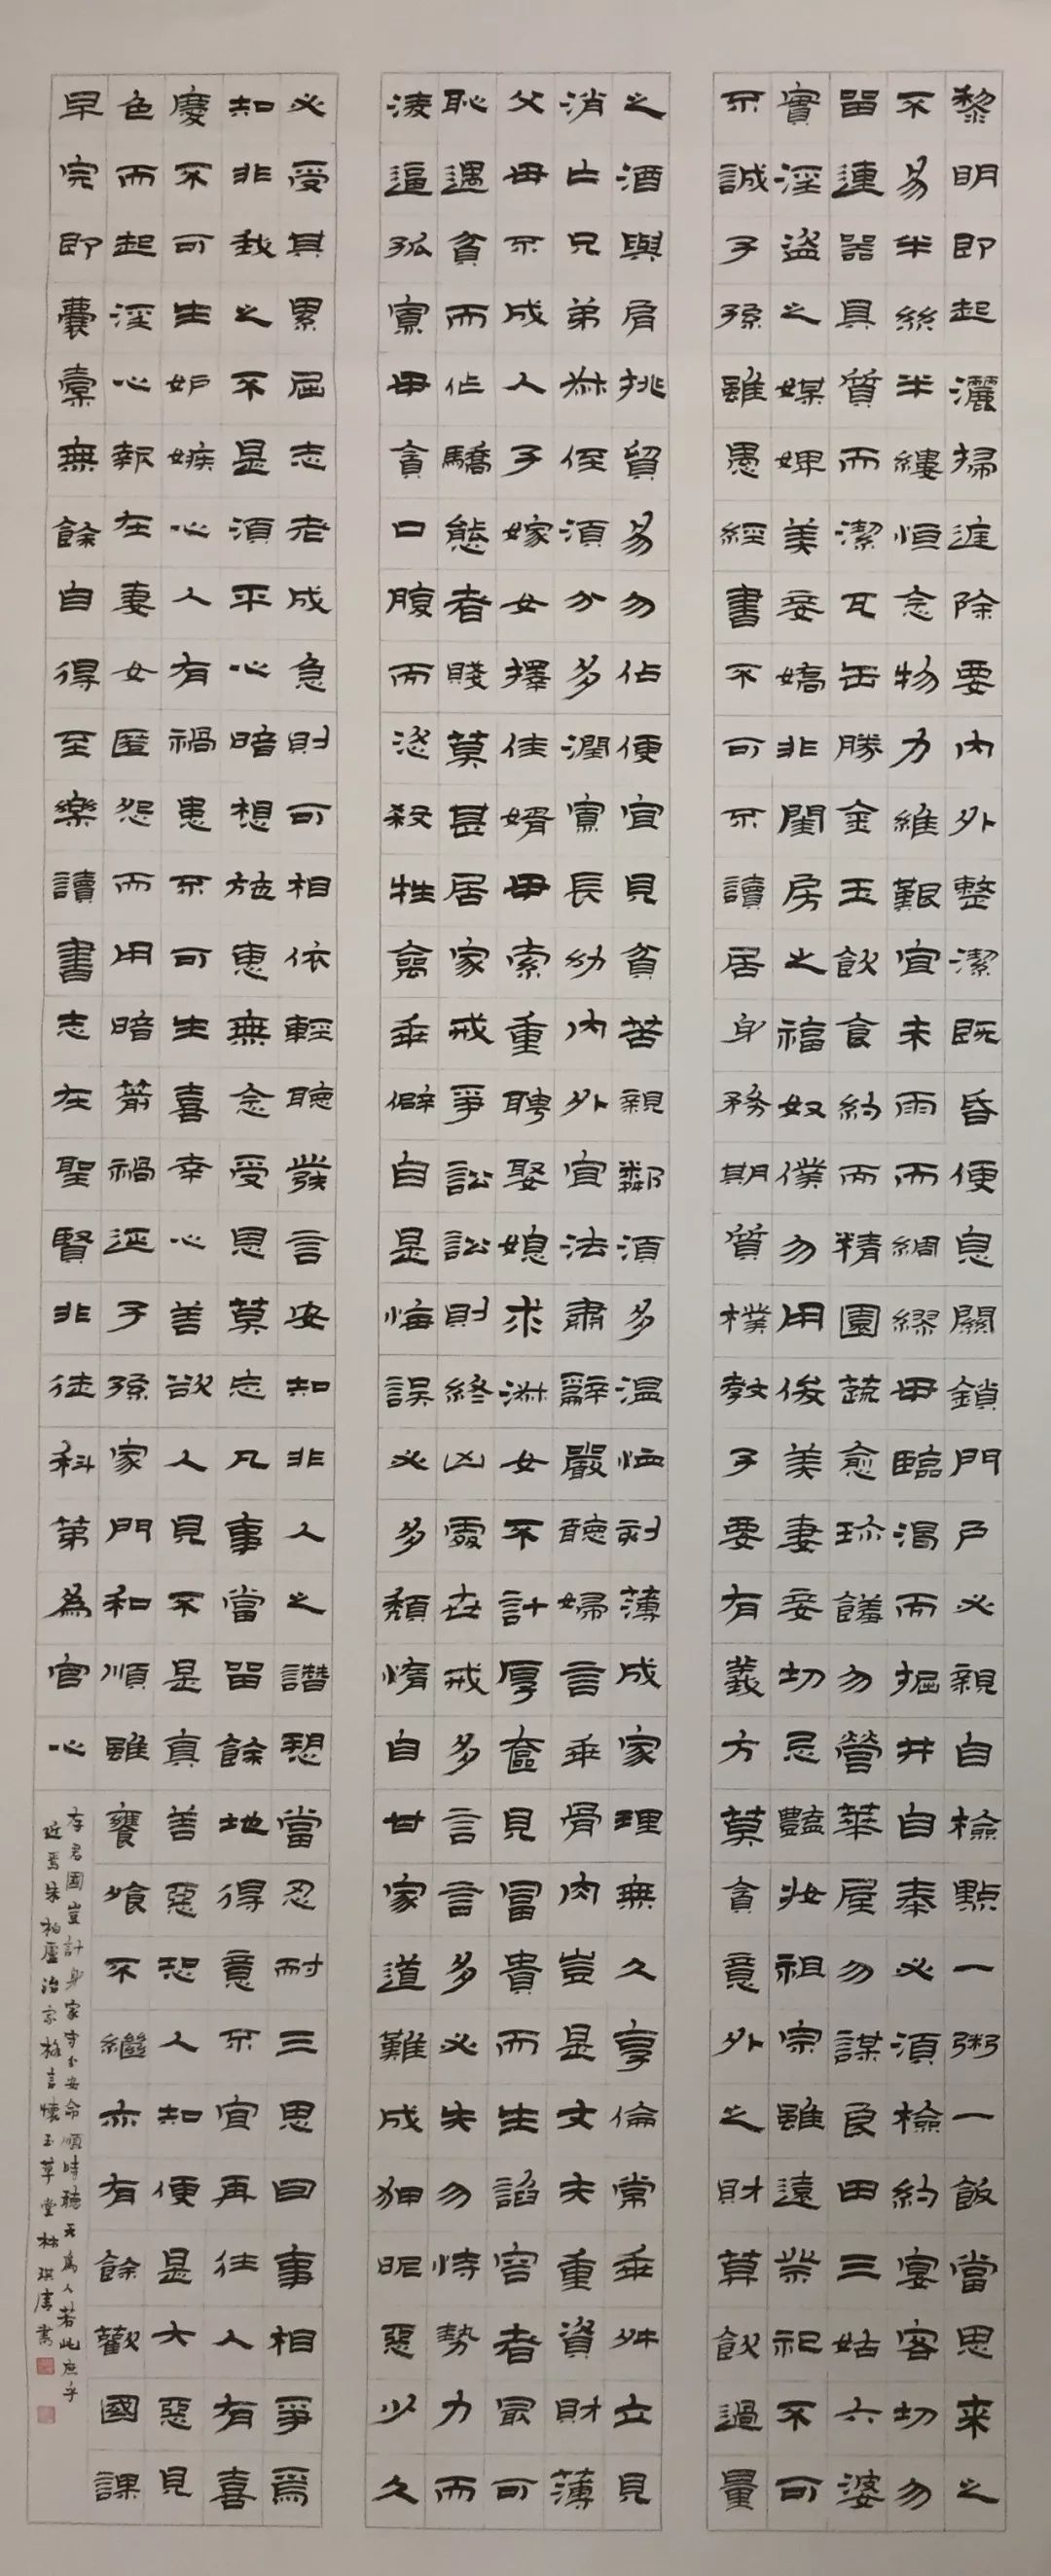 黎明即起灑掃庭除要內外整潔既昏便息關鎖門戶必親自檢點一粥一飯當思来之
不易半絲半縷恒念物力維艱宜未雨而綢繆毋臨渴而掘井自奉必須檢約宴客切勿
留連器具質而潔瓦缶勝金玉飲食約而精園蔬愈珍饈勿營華屋勿謀良田三姑六婆
實淫盜之媒婢美妾嬌非閨房之福奴僕勿用俊美妻妾切忌豔妝祖宗雖遠祭祀不可
不誠子孫雖愚經書不可不讀居身務期質樸教子要有義方莫貪意外之財莫飲過量
之酒與肩挑貿易勿佔便宜見貧苦親鄰須多溫恤刻薄成家理無久享倫常乖舛立見
消亡兄弟叔侄須分多潤寡長幼內外宜法肅辭嚴聽婦言乖骨肉豈是丈夫重資財薄
父母不成人子嫁女擇佳婿毋索重聘娶媳求淑女不計厚奩見富貴而生諂容者最可
恥遇貧而作驕態者賤莫甚居家戒爭訟訟則終凶處世戒多言言多必失勿恃勢力而
淩逼孤寡毋貪口腹而恣殺牲禽乖僻自是悔誤必多頹惰自甘家道難成狎昵惡少久
必受其累屈志老成急則可相依輕聽發言安知非人之譖愬當忍耐三思因事相爭焉
知非我之不是須平心暗想施惠無念受恩莫忘凡事當留餘地得意不宜再往人有喜
慶不可生妒嫉心人有禍患不可生喜幸心善欲人見不是真善惡恐人知便是大惡見
色而起淫心報在妻女匿怨而用暗箭禍延子孫家門和順雖饔飧不繼亦有餘歡國課
早完即囊橐無餘自得至樂讀書志在聖賢非徒科第為官心
存君國豈計身家守分安命順時聽天為人若此庶乎
近焉朱柏廬治家格言懷玉草堂林琪唐書